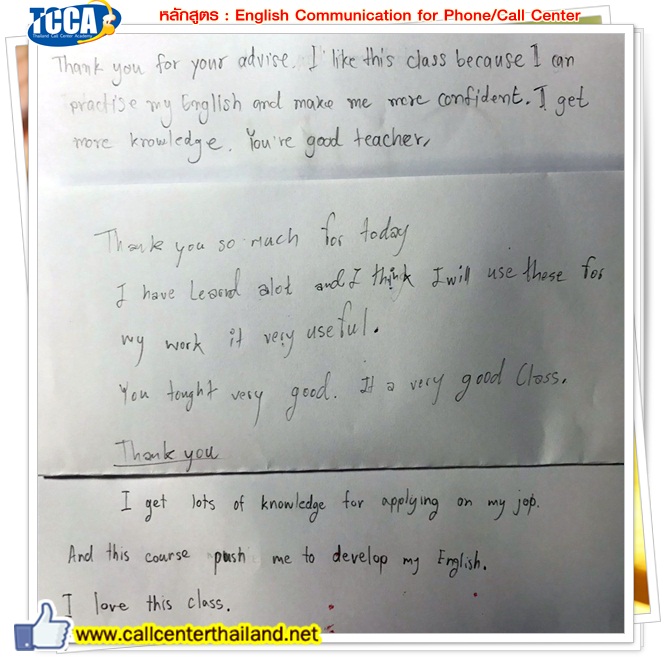 TCCA
Thailand Call Center Academy
หลักสูตร : English Communication for Phone/Call Center
Thank you for your advise. I like this class because I can
practise my English and make me more confident. I get
more knowledge. You're good teacher,
Thank you so much for today
I have Learnd alot and I think I will use these for
my work it very useful.
You tought very good. It a very good Class.
Thank you
I get lots of knowledge for applying on my jop.
And this course push me to develop my English.
I love this class.
www.callcenterthailand.net